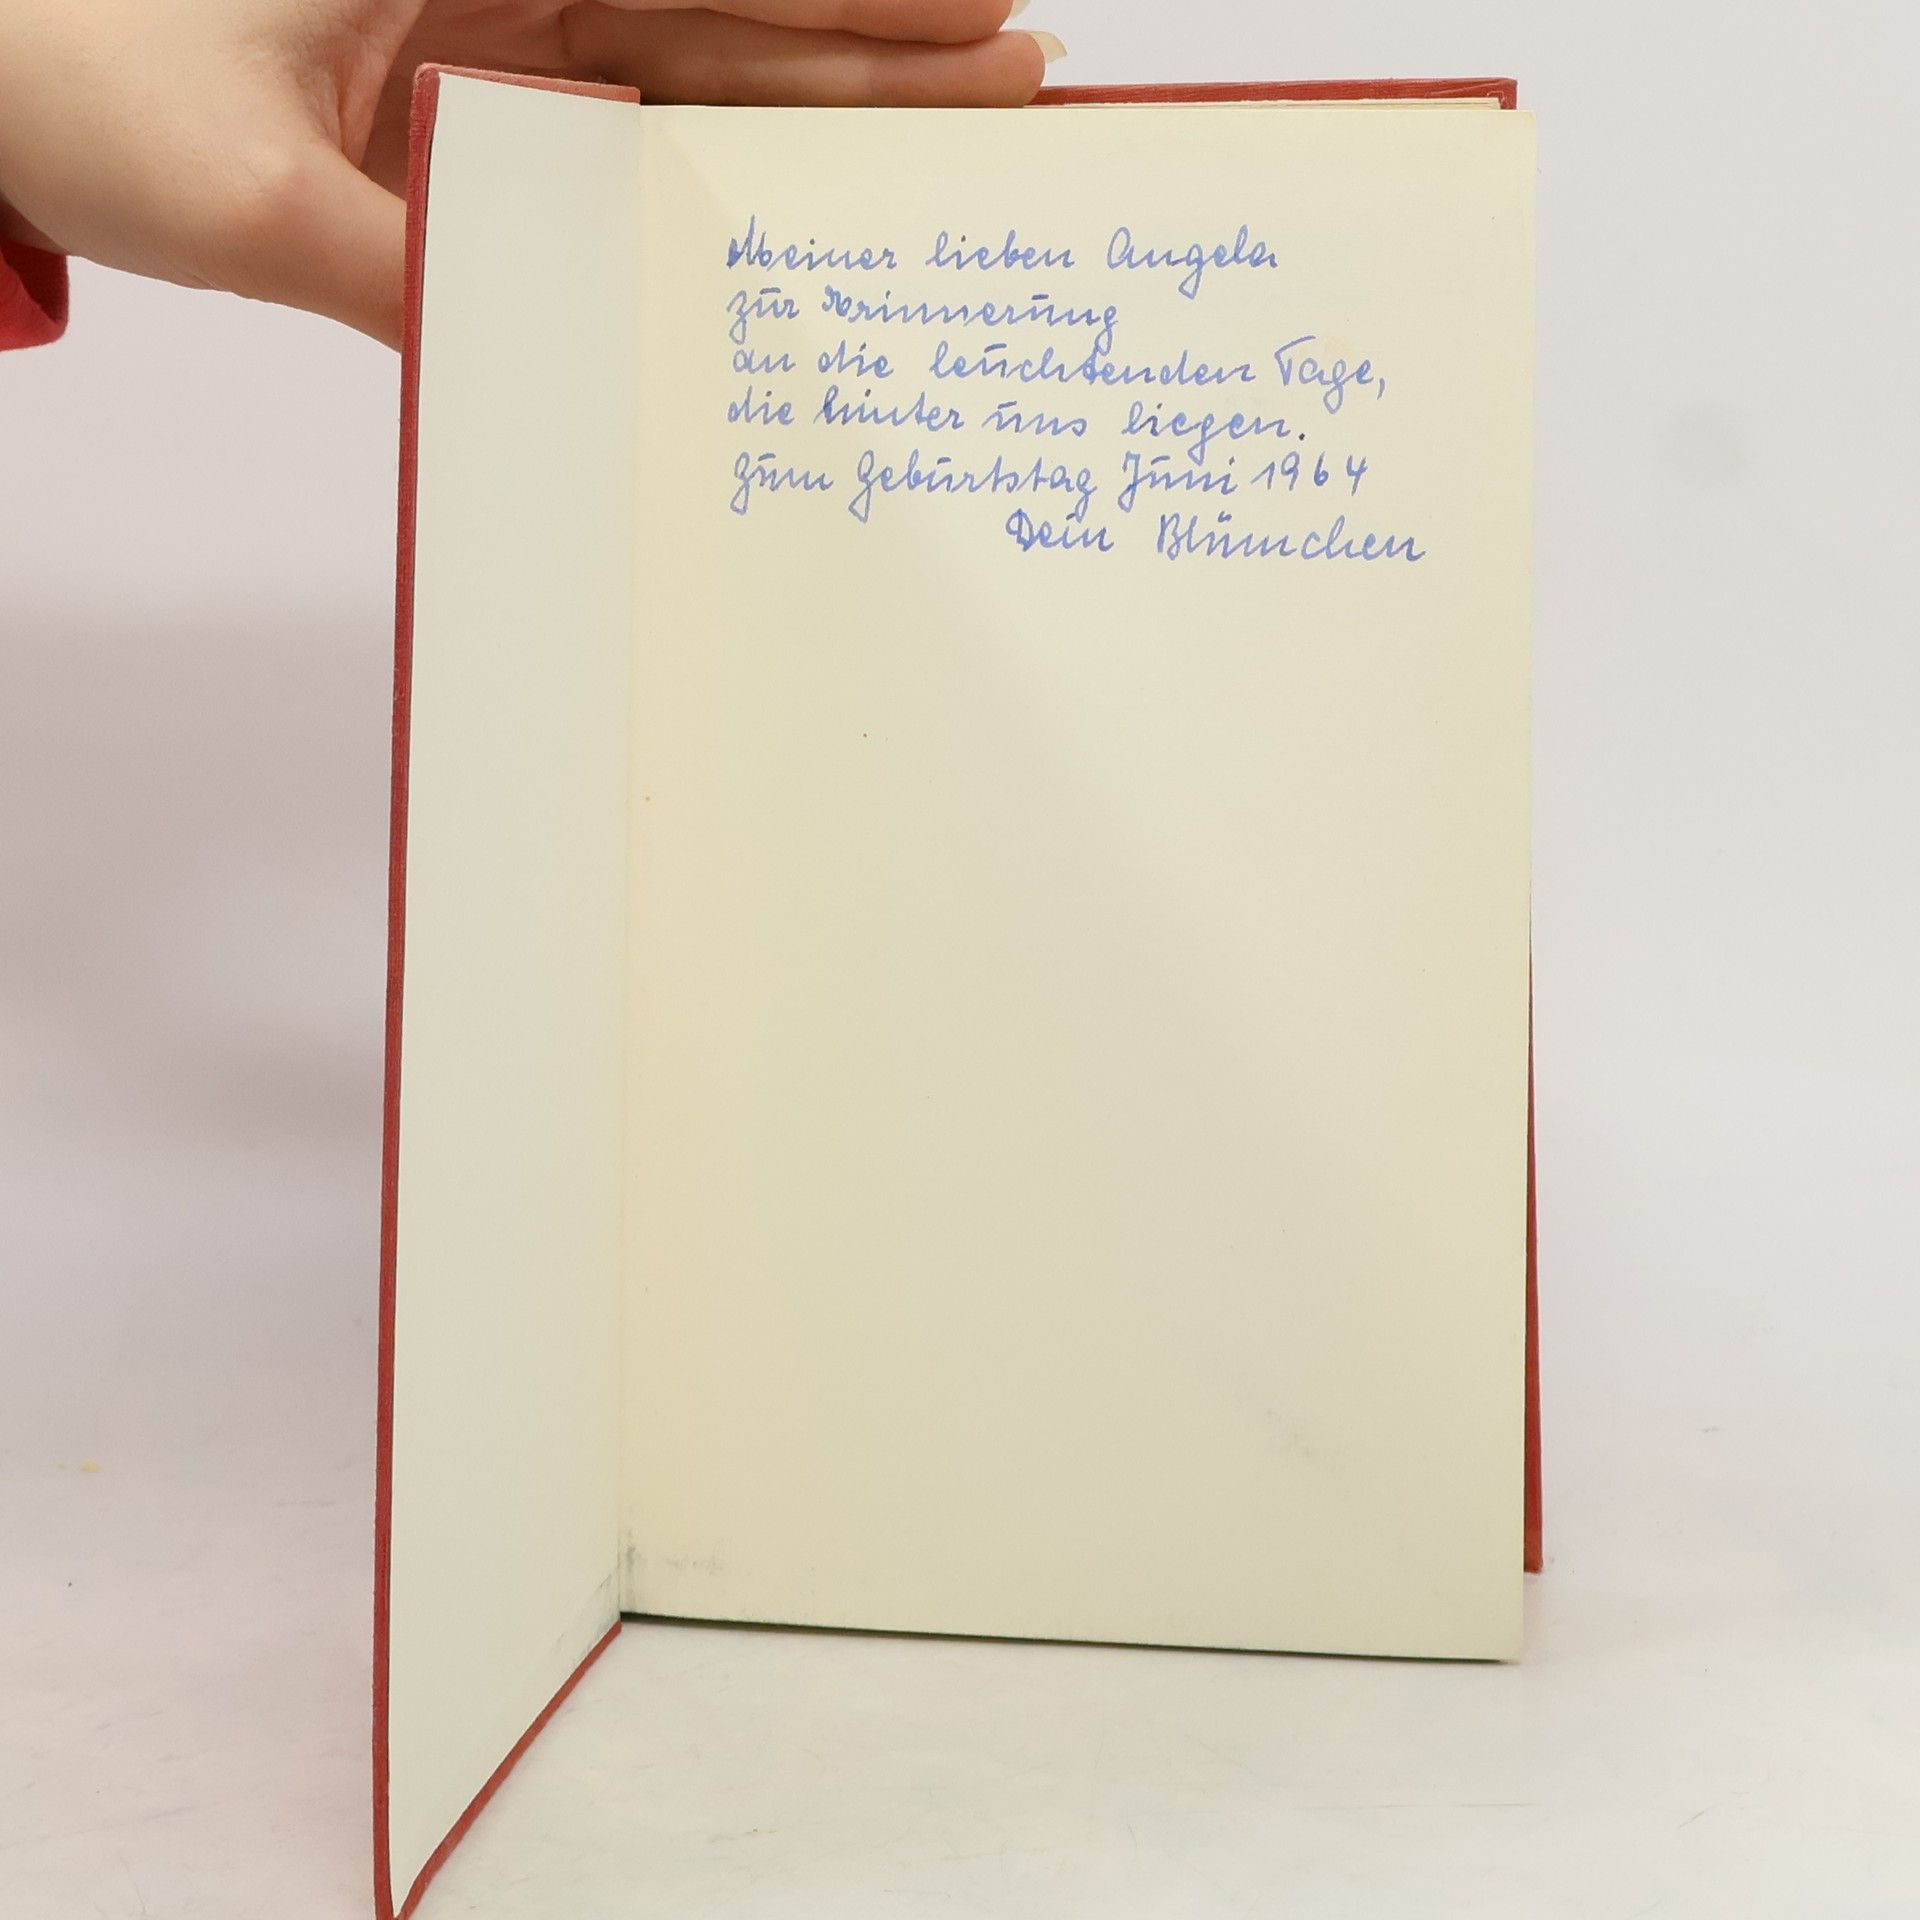 Meiner lieben Angela
zur Erinnerung
an die leuchtenden Tage,
die hinter uns liegen.
Zum Geburtstag Juni 1964
Dein Blümchen